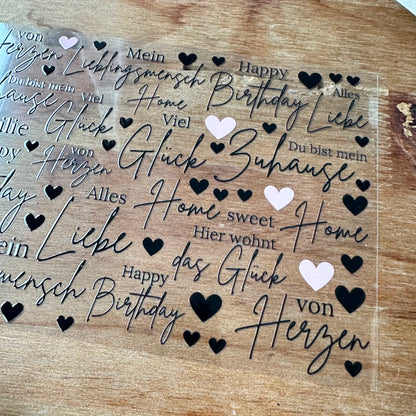 von Herzen
Mein Lieblingsmensch
Happy Birthday
Alles Liebe
Du bist mein
Zuhause
Viel Glück
Home
Viel Glück
Du bist mein
Zuhause
von Herzen
Alles Liebe
Home sweet Home
Hier wohnt
das Glück
Happy Birthday
von
Herzen